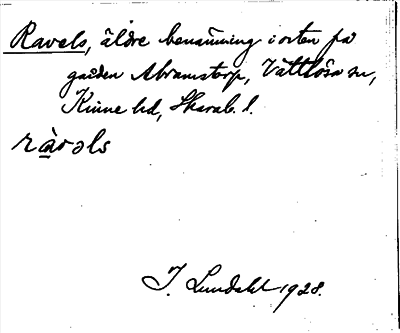 Ravals, äldre benämning i orten på
gården Abramstorp, Vättlösa sn,
Kinne hd, Skarab. l.
ràvəls
I. Lundahl 1928.